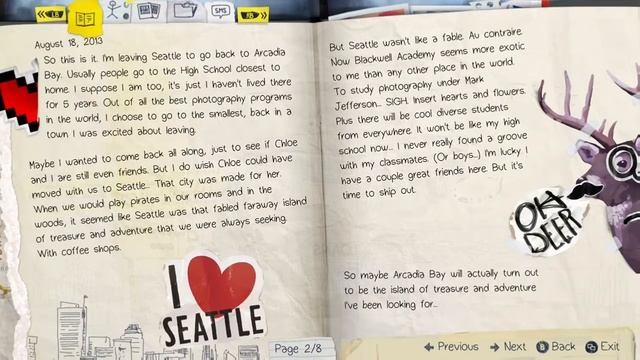 LB
SMS
RB
August 18, 2013
So this is it. I'm leaving Seattle to go back to Arcadia
Bay. Usually people go to the High School closest to
home. I suppose I am too, it's just I haven't lived there
for 5 years. Out of all the best photography programs
in the world, I choose to go to the smallest, back in a
town I was excited about leaving.
Maybe I wanted to come back all along, just to see if Chloe
and I are still even friends. But I do wish Chloe could have
moved with us to Seattle... That city was made for her.
When we would play pirates in our rooms and in the
woods, it seemed like Seattle was that fabled faraway island
of treasure and adventure that we were always seeking.
With coffee shops.
I
SEATTLE
But Seattle wasn't like a fable. Au contraire.
Now Blackwell Academy seems more exotic
to me than any other place in the world.
To study photography under Mark
Jefferson... SIGH. Insert hearts and flowers.
Plus there will be cool diverse students
from everywhere. It won't be like my high
school now... I never really found a groove
with my classmates. (Or boys...) I'm lucky I
have a couple great friends here. But it's
time to ship out.
OH
DEER
So maybe Arcadia Bay will actually turn out
to be the island of treasure and adventure
I've been looking for...
Page 2/8
Previous
Next
B Back
Exit